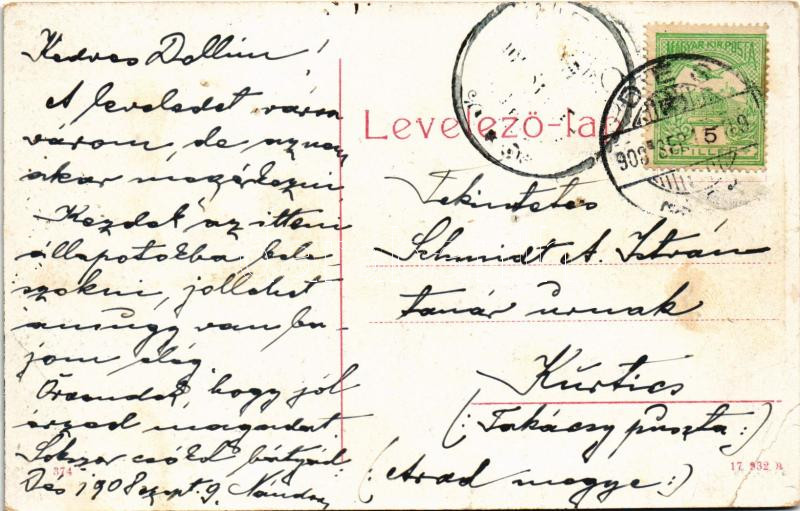 Kedves Dollim!
A leveledet várva
várom, de az nem
akar megérkezni
Kezdek az itteni
állapotokba bele-
szokni, jóllehet
amúgy van ba-
jom elég
Örvendek, hogy jól
érzed magadat
Sokszor csókol bátyád
Dés 1908 szept. 9. Nándor
374
MAGYAR KIR. POSTA
5
FILLÉR
DÉS
908 SEP
Levelező-lap
Tekintetes
Schmidt A. István
tanár urnak
Kürtics
(: Takácsy puszta :)
(: Arad megye :)
17 932 B